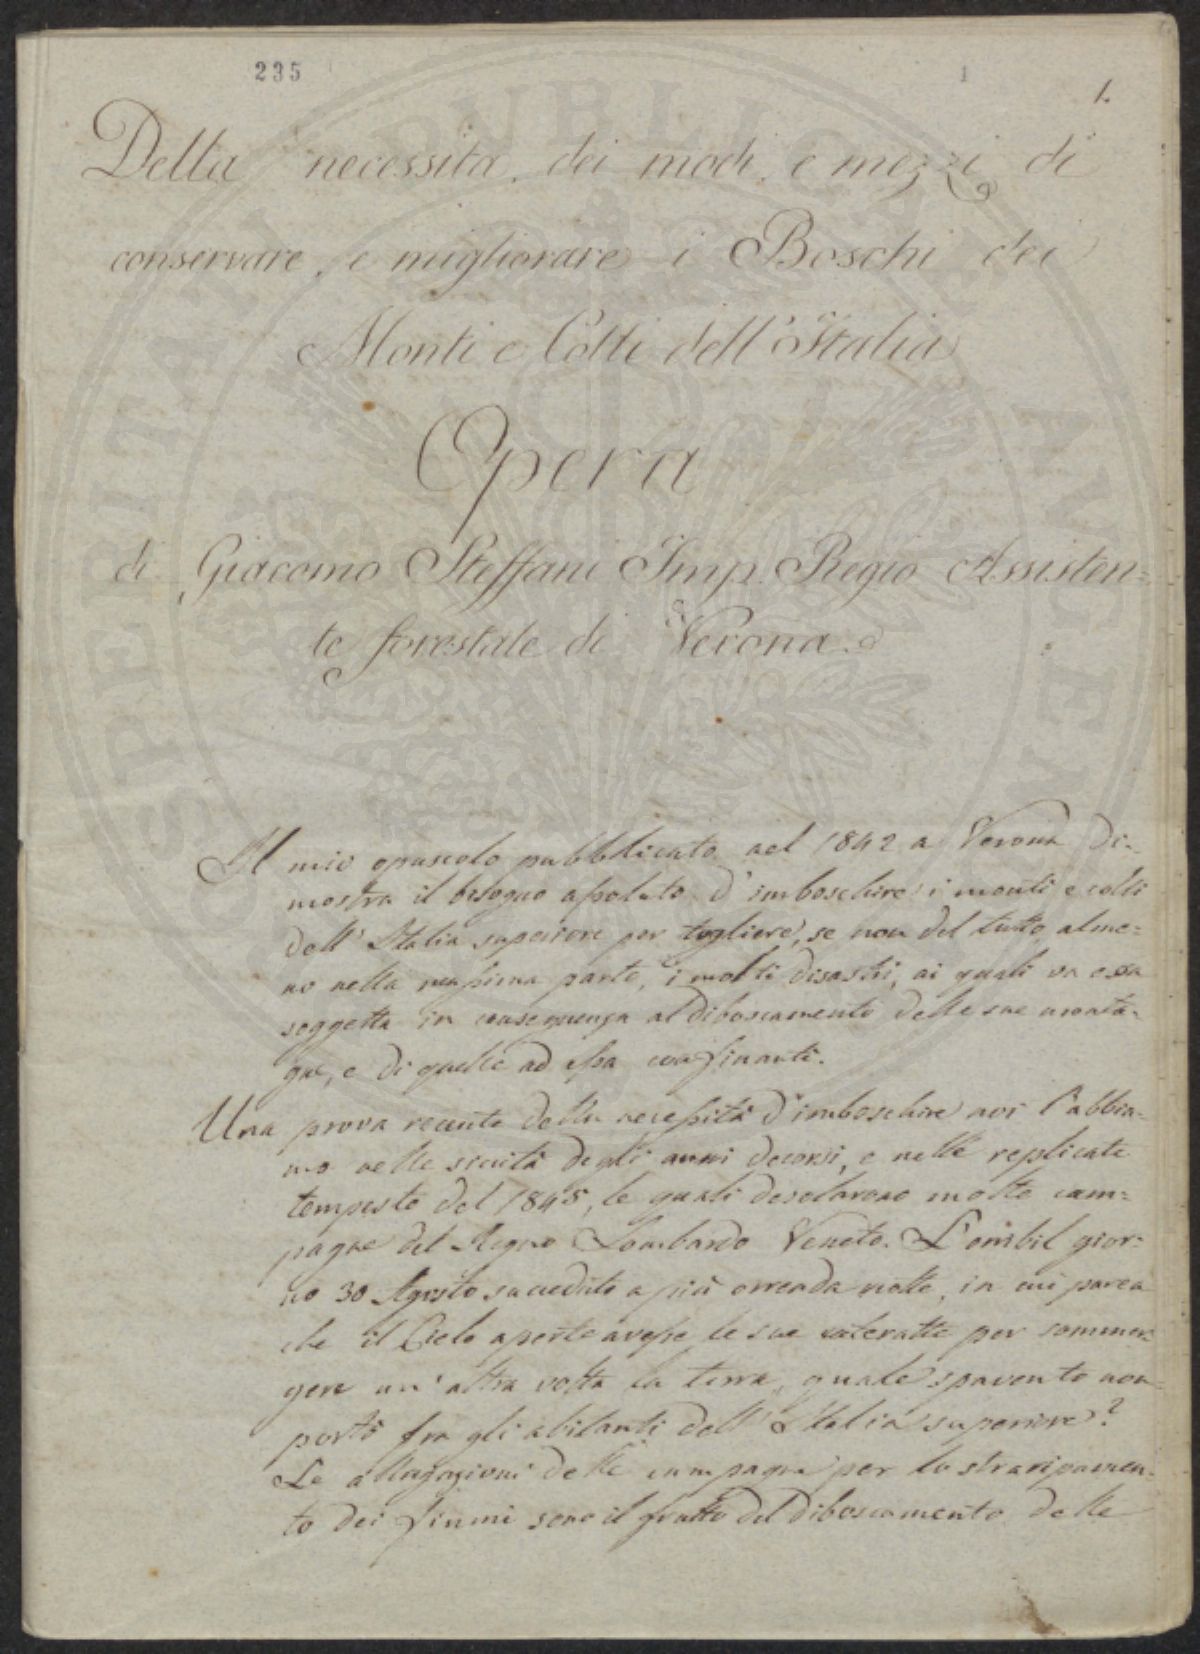 235
1
1.
Della necessità, dei modi, e mezzi di
conservare, e migliorare i Boschi dei
Monti e Colli dell'Italia
Opera
di Giacomo Steffani Imp. Regio Assisten=
te forestale di Verona.
Il mio opuscolo pubblicato nel 1842 a Verona di=
mostra il bisogno assoluto d'imboschire i monti e colli
dell'Italia superiore per togliere, se non del tutto, alme=
no nella massima parte, i molti disastri, ai quali va essa
soggetta in conseguenza al diboscamento delle sue monta=
gne, e di quelle ad essa confinanti.
Una prova recente della necessità d'imboschire noi l'abbia=
mo nelle siccità degli anni decorsi, e nelle replicate
tempeste del 1845, le quali desolarono molte cam=
pagne del Regno Lombardo Veneto. L'orribil gior=
no 30 Agosto succeduto a più orrenda notte, in cui parea
che il Cielo aperte avesse le sue cateratte per sommer=
gere un'altra volta la terra, quale spavento non
portò fra gli abitanti dell'Italia superiore?
Le allagazioni delle campagne per lo straripamen=
to dei fiumi sono il frutto del diboscamento delle
SPERITATI PVBLICAE AVGEN